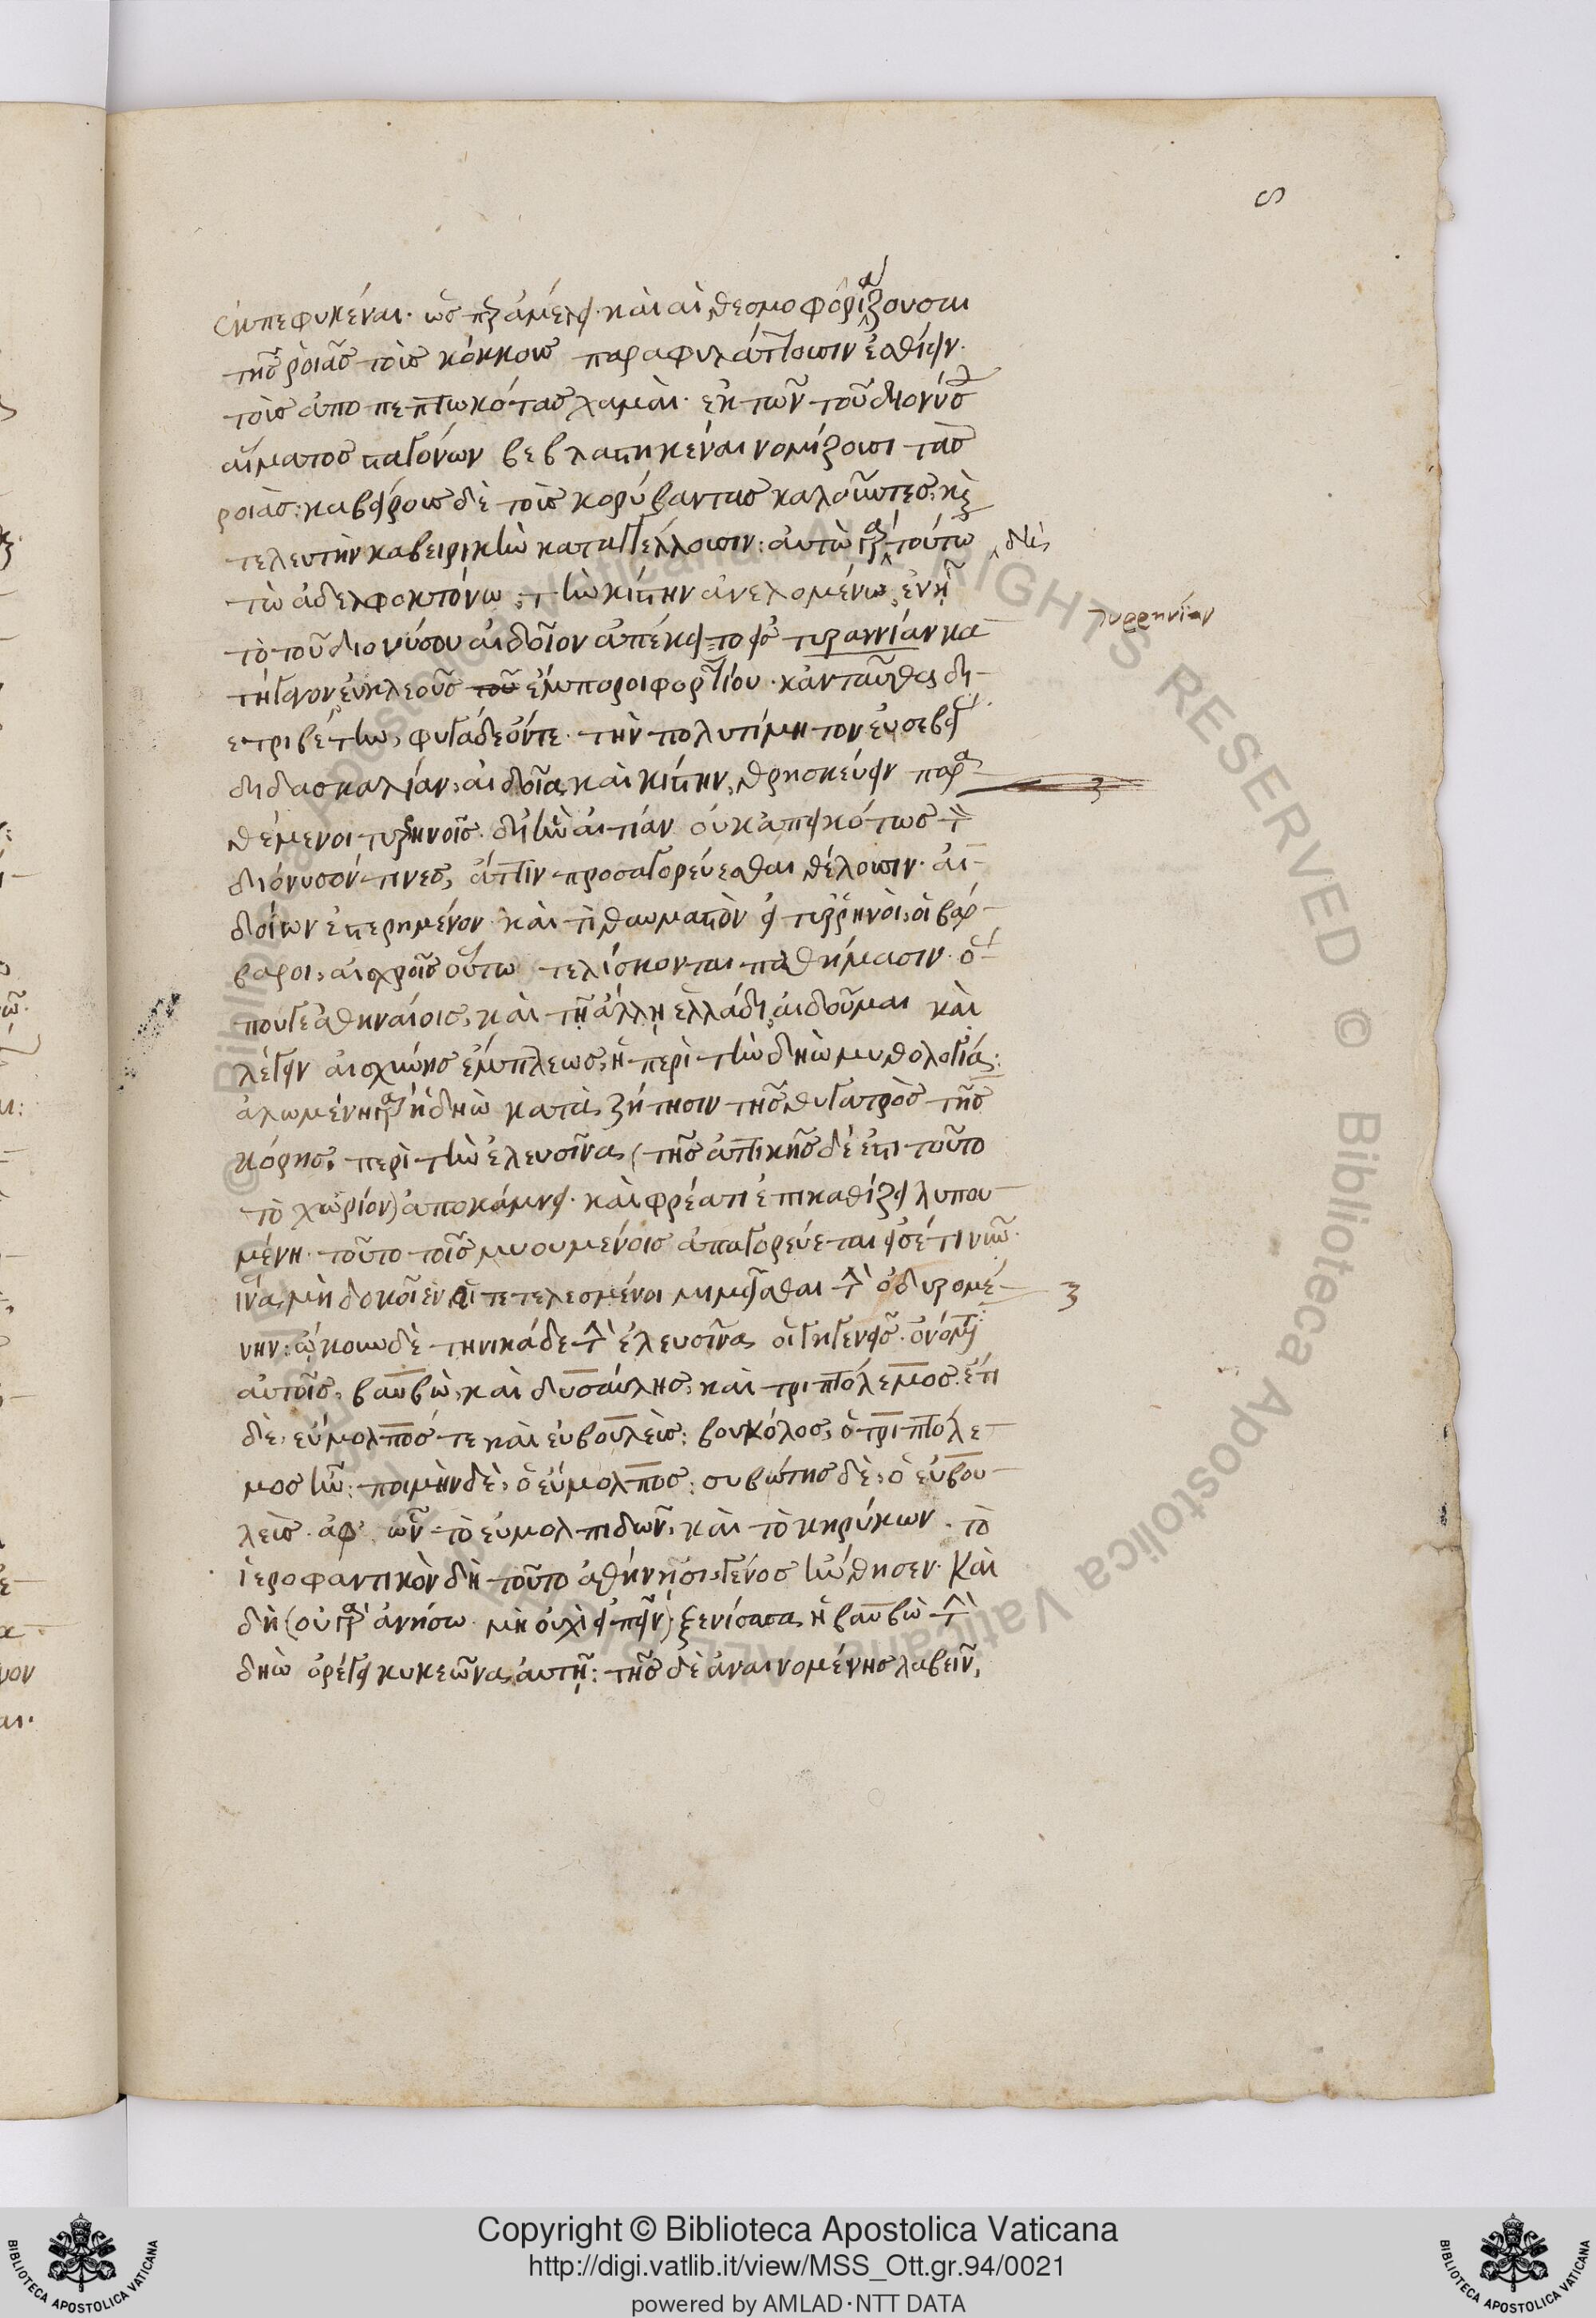 ϛ
ἐκπεφυκέναι· ὥσπερ ἀμέλει καὶ αἱ θεσμοφοριάζουσαι
τῆς ῥοιᾶς τοὺς κόκκους παραφυλάττουσιν ἐσθίειν·
τοὺς ἀποπεπτωκότας χαμαὶ· ἐκ τῶν τοῦ διονύσου
αἵματος σταγόνων βεβλαστηκέναι νομίζουσι τὰς
ροιάς: καβείρους δὲ τοὺς κορύβαντας καλοῦντες, καὶ
τελευτὴν καβειρικὴν καταγγέλλουσιν: αὐτὼ γὰρ τούτω
δὴ
τὼ ἀδελφοκτόνω, τὴν κίστην ἀνελομένω, ἐν ἧ
τὸ τοῦ διονύσου αἰδοῖον ἀπέκειτο εἰς τυραννίαν κα
τυρρηνίαν
τήγαγον εὐκλεοῦς του ἔμποροι φορτίου· κἀνταῦθα δι
ετριβέτην, φυγάδε ὄντε· τὴν πολυτίμητον εὐσεβείας
διδασκαλίαν, αἰδοῖα καὶ κίστην, θρησκεύειν παρα
θέμενοι τυρρηνοῖς· δι' ἣν αἰτίαν οὐκ ἀπεικότως τὸν
διόνυσόν τινες, ἄττιν προσαγορεύεσθαι θέλουσιν· αἰ
δοίων ἐστερημένον· καὶ τί θαυμαστὸν εἰ τυρρηνοὶ, οἱ βάρ
βαροι, αἰσχροῖς οὕτω τελίσκονται παθήμασιν· ὅ
που γε ἀθηναίοις, καὶ τῆ ἄλλη ἑλλάδι, αἰδοῦμαι καὶ
λέγειν αἰσχύνης ἔμπλεως, ἡ περὶ τὴν δηὼ μυθολογία:
ἀλωμένη γὰρ ἡ δηὼ κατὰ ζήτησιν τῆς θυγατρὸς τῆς
κόρης, περὶ τὴν ἐλευσῖνα, (τῆς ἀττικῆς δέ ἐστι τοῦτο
τὸ χωρίον) ἀποκάμνει· καὶ φρέατι ἐπικαθίζει λυπου
μένη· τοῦτο τοῖς μυουμένοις ἀπαγορεύεται εἰσέτι νῦν·
ἵνα μὴ δοκοῖεν οἱ τετελεσμένοι μιμεῖσθαι τὴν ὀδυρομέ
νην: ᾤκουν δὲ τηνικάδε τὴν ἐλευσῖνα οἱ γηγενεῖς· ὀνόματα
αὐτοῖς, βαυβὼ, καὶ δυσαύλης, καὶ τριπτόλεμος· ἔτι
δὲ, εὔμολπός τε καὶ εὐβουλεὺς: βουκόλος, ὁ τριπτόλε
μος ἦν: ποιμὴν δὲ, ὁ εὔμολπος: συβώτης δὲ, ὁ εὐβου
λεὺς· ἀφ' ὧν τὸ εὐμολπιδῶν, καὶ τὸ κηρύκων· τὸ
ἱεροφαντικὸν δὴ τοῦτο ἀθήνησι γένος ἤνθησεν· καὶ
δὴ (οὐ γὰρ ἀνήσω μὴ οὐχὶ εἰπεῖν) ξενίσασα ἡ βαυβὼ τὴν
δηὼ ὀρέγει κυκεῶνα αὐτῆ: τῆς δὲ ἀναινομένης λαβεῖν,
Copyright © Biblioteca Apostolica Vaticana
http://digi.vatlib.it/view/MSS_Ott.gr.94/0021
powered by AMLAD·NTT DATA